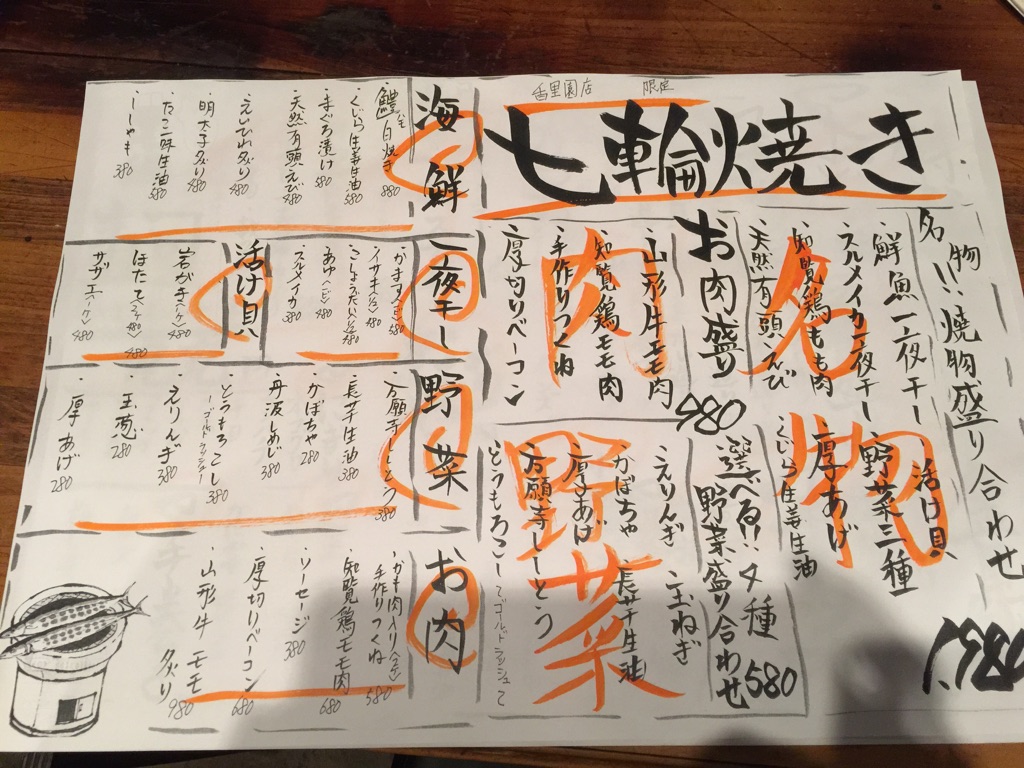 香里園店 限定
七輪焼き
名物!!焼物盛り合わせ
鮮魚一夜干し
スルメイカ一夜干し
知覧鶏もも肉
天然有頭えび
活け貝
野菜三種
厚あげ
くじら生姜生油
名物
お肉盛り
980
山形牛モモ肉
知覧鶏モモ肉
手作りつくね
厚切りベーコン
肉
選べる!!
野菜盛り合わせ
580
えりんぎ
かばちゃ
厚あげ
万願寺しとう
とうもろこし
玉ねぎ
長芋生油
野菜
海鮮
鱧白焼き 880
くじら生姜生油 580
まぐろ漬け 580
天然有頭えび 480
えいひれ炙り 480
明太子炙り 480
たこ味生油 580
ししゃも 380
一夜干し
かますヌ 480
イサキ 480
あゆ 480
スルメイカ 380
活け貝
岩がき 480
ほたて 480
サザエ 480
野菜
万願寺しとう 380
長芋生油 380
かばちゃ 280
丹波しめじ 380
とうもろこし 380
えりんぎ 380
玉葱 280
厚あげ 280
お肉
かも肉入り
手作りつくね 580
知覧鶏モモ肉 680
ソーセージ 380
厚切りベーコン 680
山形牛モモ炙り 980